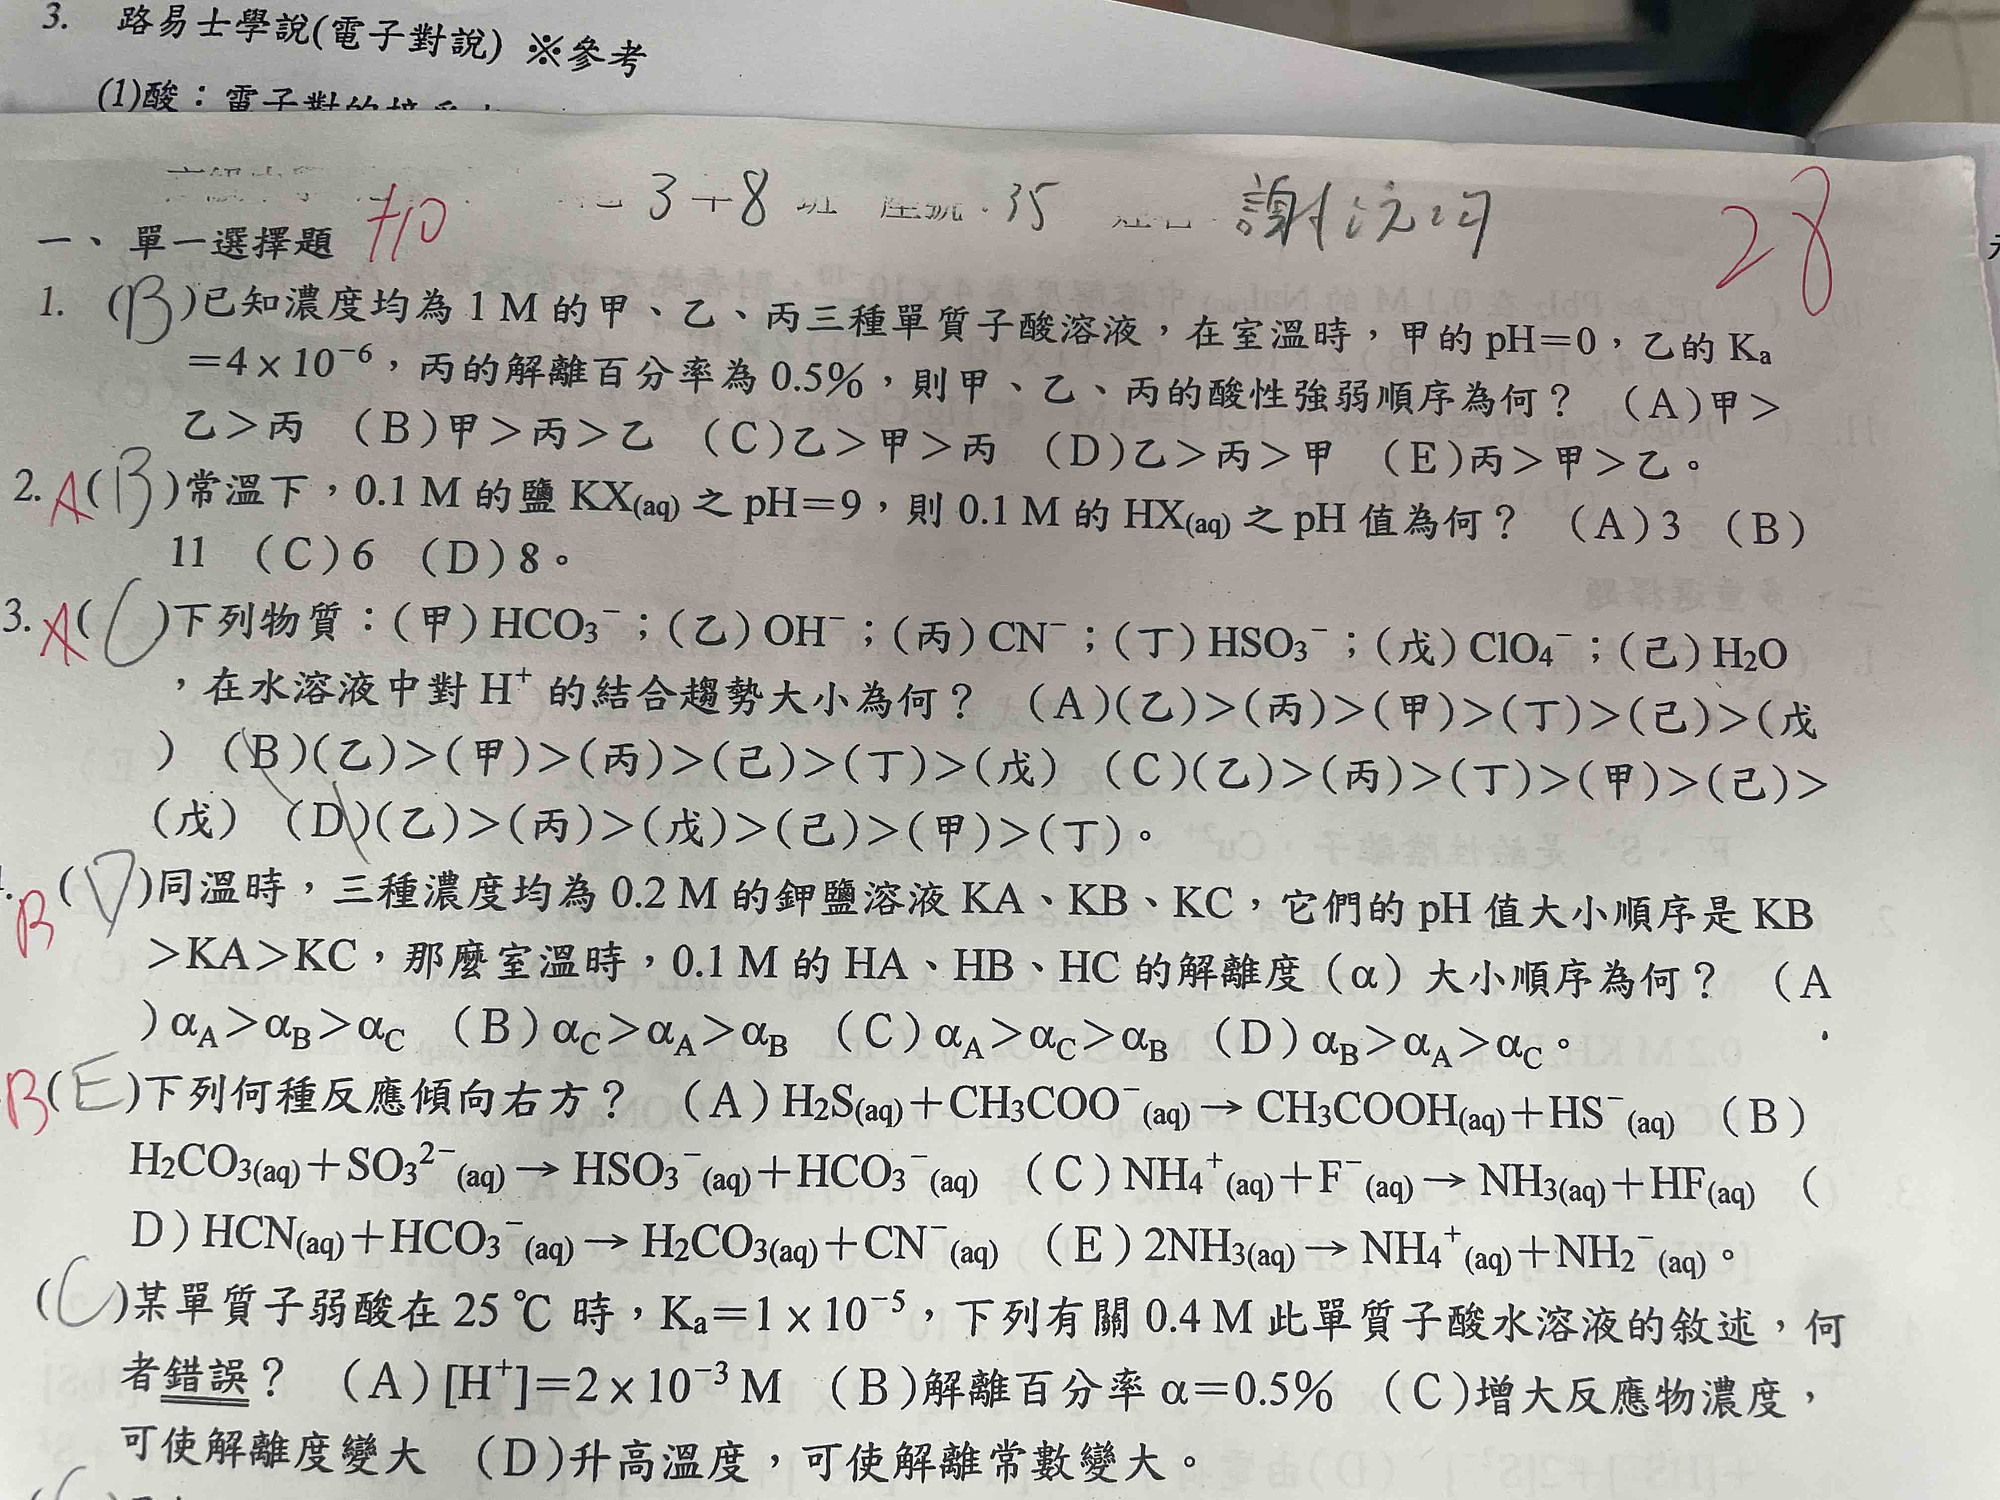 3. 路易士學說(電子對說) ※參考
(1)酸：電子對的接受
3 8 班 座號：35 謝 28
一、單一選擇題 +10
1. (B)已知濃度均為 1 M 的甲、乙、丙三種單質子酸溶液，在室溫時，甲的 pH＝0，乙的 Ka
＝4 × 10⁻⁶，丙的解離百分率為 0.5%，則甲、乙、丙的酸性強弱順序為何？ (A)甲＞
乙＞丙 (B)甲＞丙＞乙 (C)乙＞甲＞丙 (D)乙＞丙＞甲 (E)丙＞甲＞乙。
2. A(B)常溫下，0.1 M 的鹽 KX(aq) 之 pH＝9，則 0.1 M 的 HX(aq) 之 pH 值為何？ (A)3 (B)
11 (C)6 (D)8。
3. A(C)下列物質：(甲)HCO₃⁻；(乙)OH⁻；(丙)CN⁻；(丁)HSO₃⁻；(戊)ClO₄⁻；(己)H₂O
，在水溶液中對 H⁺ 的結合趨勢大小為何？ (A)(乙)＞(丙)＞(甲)＞(丁)＞(己)＞(戊
) (B)(乙)＞(甲)＞(丙)＞(己)＞(丁)＞(戊) (C)(乙)＞(丙)＞(丁)＞(甲)＞(己)＞
(戊) (D)(乙)＞(丙)＞(戊)＞(己)＞(甲)＞(丁)。
B(D)同溫時，三種濃度均為 0.2 M 的鉀鹽溶液 KA、KB、KC，它們的 pH 值大小順序是 KB
＞KA＞KC，那麼室溫時，0.1 M 的 HA、HB、HC 的解離度（α）大小順序為何？ (A
)αA＞αB＞αC (B)αC＞αA＞αB (C)αA＞αC＞αB (D)αB＞αA＞αC。
B(E)下列何種反應傾向右方？ (A)H₂S(aq)＋CH₃COO⁻(aq)→ CH₃COOH(aq)＋HS⁻(aq) (B)
H₂CO₃(aq)＋SO₃²⁻(aq)→ HSO₃⁻(aq)＋HCO₃⁻(aq) (C)NH₄⁺(aq)＋F⁻(aq)→ NH₃(aq)＋HF(aq) (
D)HCN(aq)＋HCO₃⁻(aq)→ H₂CO₃(aq)＋CN⁻(aq) (E)2NH₃(aq)→ NH₄⁺(aq)＋NH₂⁻(aq)。
(C)某單質子弱酸在 25 ℃ 時，Ka＝1 × 10⁻⁵，下列有關 0.4 M 此單質子酸水溶液的敘述，何
者錯誤？ (A)[H⁺]＝2 × 10⁻³ M (B)解離百分率 α＝0.5% (C)增大反應物濃度，
可使解離度變大 (D)升高溫度，可使解離常數變大。